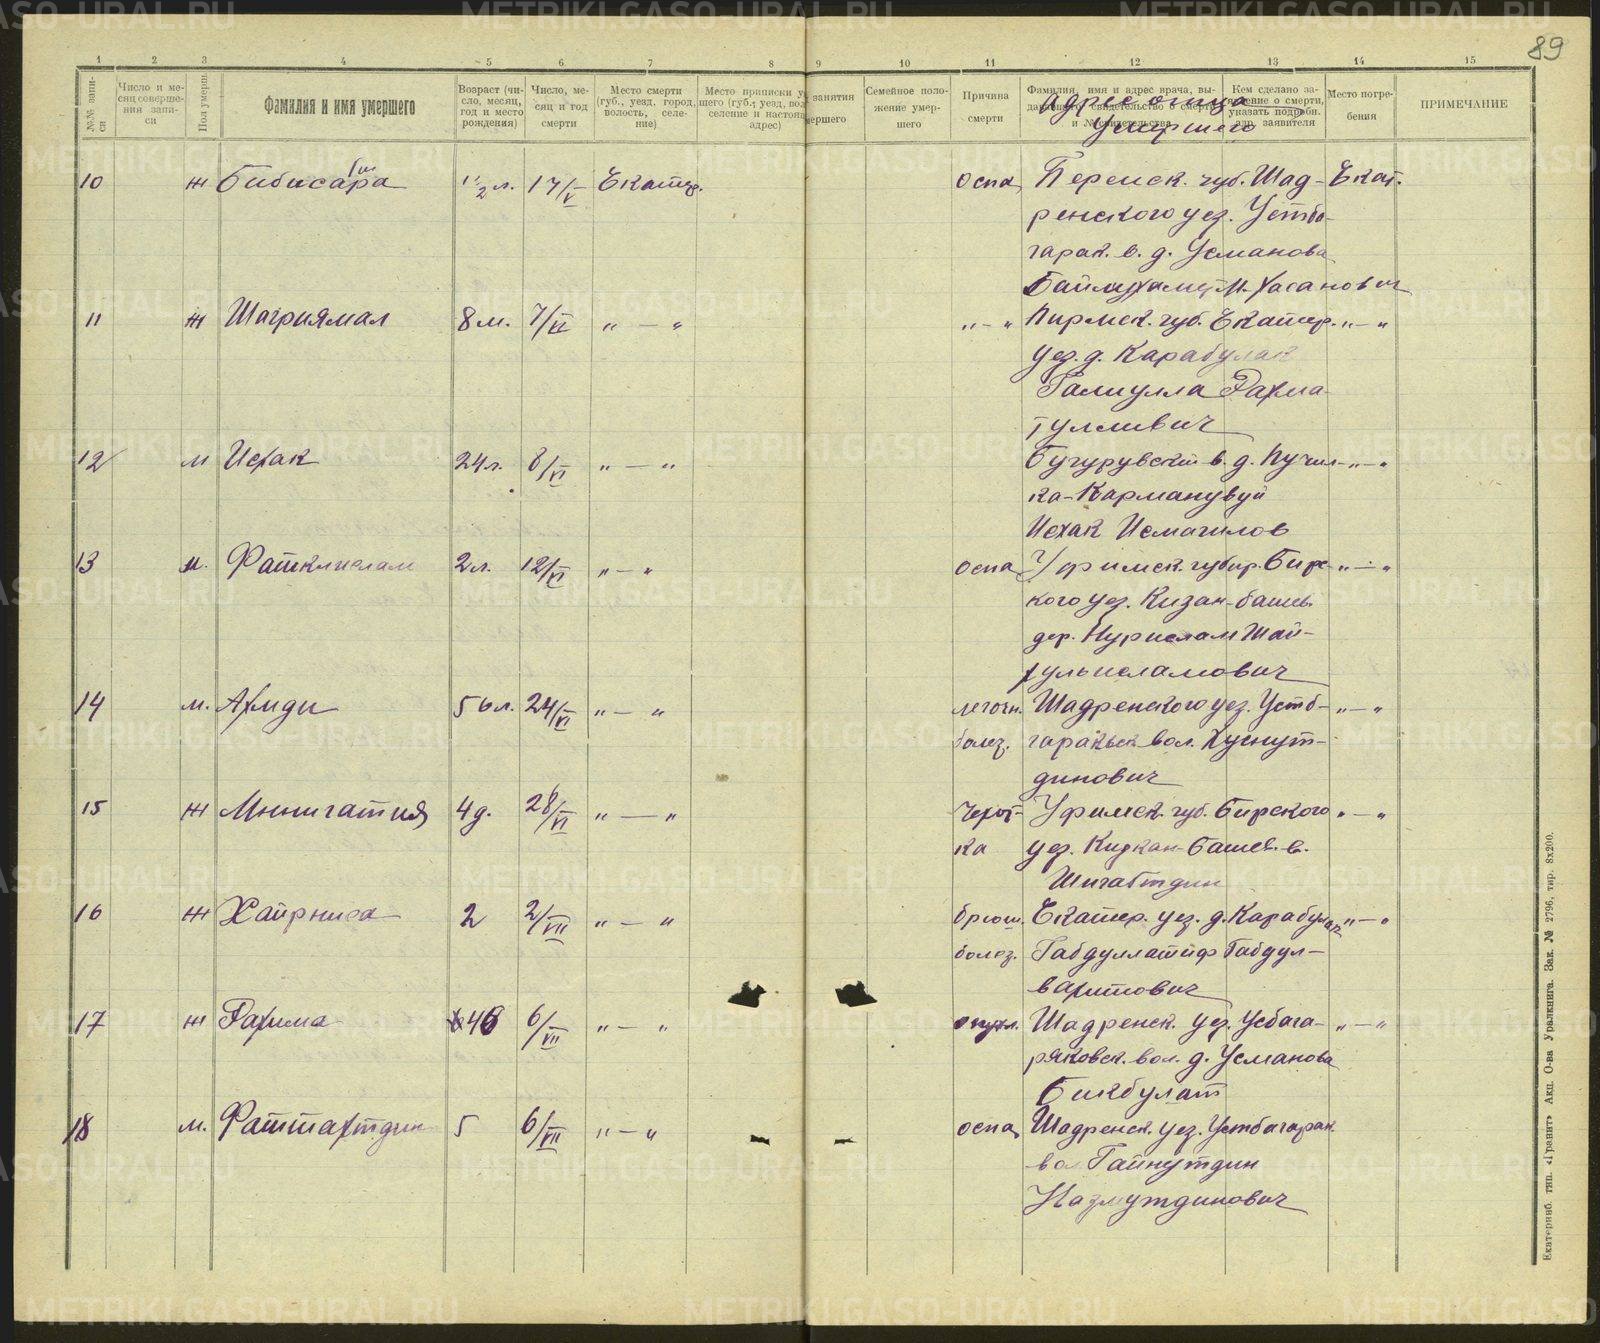 89
1 2 3 4 5 6 7 8 9 10 11 12 13 14 15
№№ запи-
си
Число и ме-
сяц соверше-
ния запи-
си
Пол умерш.
Фамилия и имя умершего
Возраст (чи-
сло, месяц,
год и место
рождения)
Число, ме-
сяц и год
смерти
Место смерти
(губ., уезд, город,
волость, селе-
ние)
Место приписки у
шего (губ., уезд, вол
селение и настоя
адрес)
занятия
мершего
Семейное поло-
жение умер-
шего
Причина
смерти
Фамилия, имя и адрес врача, вы-
давшего свидетельство о смерти
и № свидетельства
адрес отца
умершего
Кем сделано за-
явление о смерти,
указать подробн.
адр. заявителя
Место погре-
бения
ПРИМЕЧАНИЕ
10 ж Бибисара 1 1/2 л. 17/V Екатер. оспа Пермск. губ. Шад- Екат.
ренского уез. Устьба-
гарак. в. д. Усманова
Хасанович
11 ж Шагриямал 8 м. 7/VI „ — „ „ — „ Пирмск. губ. Екатер. „ — „
уез. д. Карабулак
Галиулла Рахма-
туллович
12 м Исхак 24 л. 8/VI „ — „ в. д. „ — „
ка-
Исхак Исмагилов
13 м. Фатклислам 2 л. 12/VI „ — „ оспа Уфимск. губер. Бирс- „ — „
кого уез. Кизан-башев.
дер. Нурислам Шай-
хульисламович
14 м. Ахмди 56 л. 24/VI „ — „ легочн. Шадренского уез. Устб- „ — „
болез. гаракьск вол. Хуснут-
динович
15 ж Миннигатия 4 д. 28/VI „ — „ Чехот- Уфимск. губ. Бирского „ — „
ка уез. Кизкан-Башев. в.
Шигабтдин
16 ж Хайрниса 2 2/VII „ — „ брюш. Екатер. уез. д. Карабулак „ — „
болез. Габдуллатиф Габдул-
вахитович
17 ж Рахима 46 6/VII „ — „ опухл. Шадренск. уез. Усбага- „ — „
ряковск. вол. д. Усманова
Бикбулат
18 м. Фаттахтдин 5 6/VII „ — „ оспа Шадренск. уез. Устбагарак.
вол Гайнутдин
Назмутдинович
Екатеринб. тип. «Гранит» Акц. О-ва Уралкнига. Зак. № 2796, тир. 8х200.
METRIKI.GASO-URAL.RU